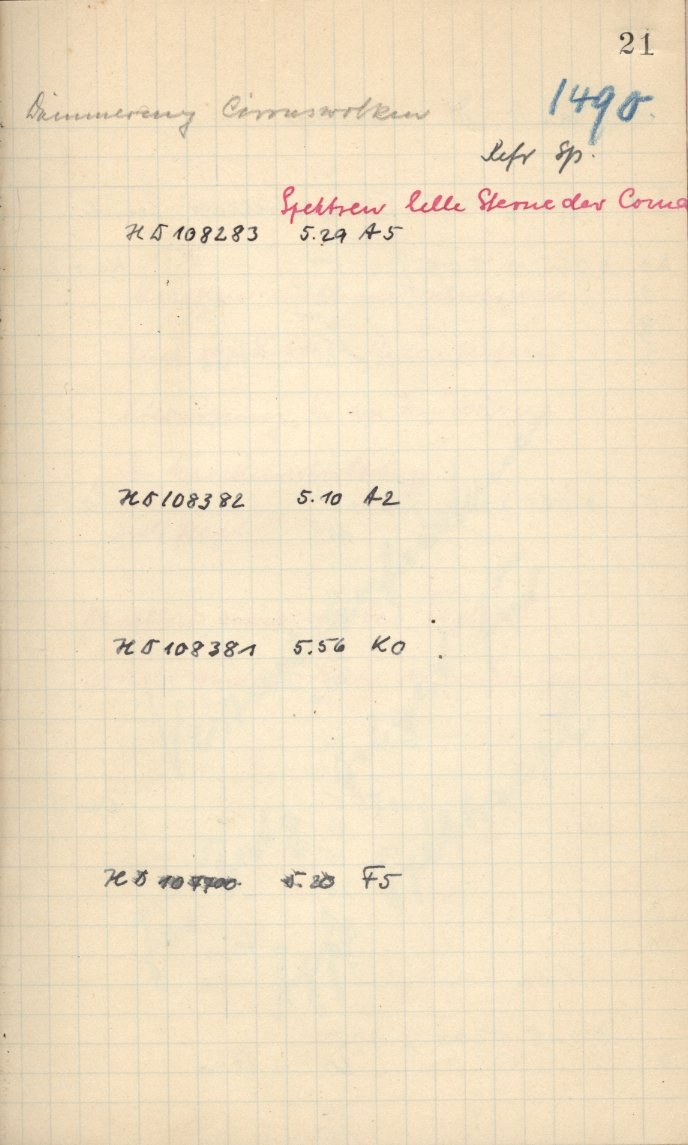 21
Dämmerung Cirruswolken
1490
Refr Sp.
Spektren helle Sterne der Coma
HD 108283 5.29 A5
HD 108382 5.10 A2
HD 108381 5.56 K0
HD 107700 5.20 F5